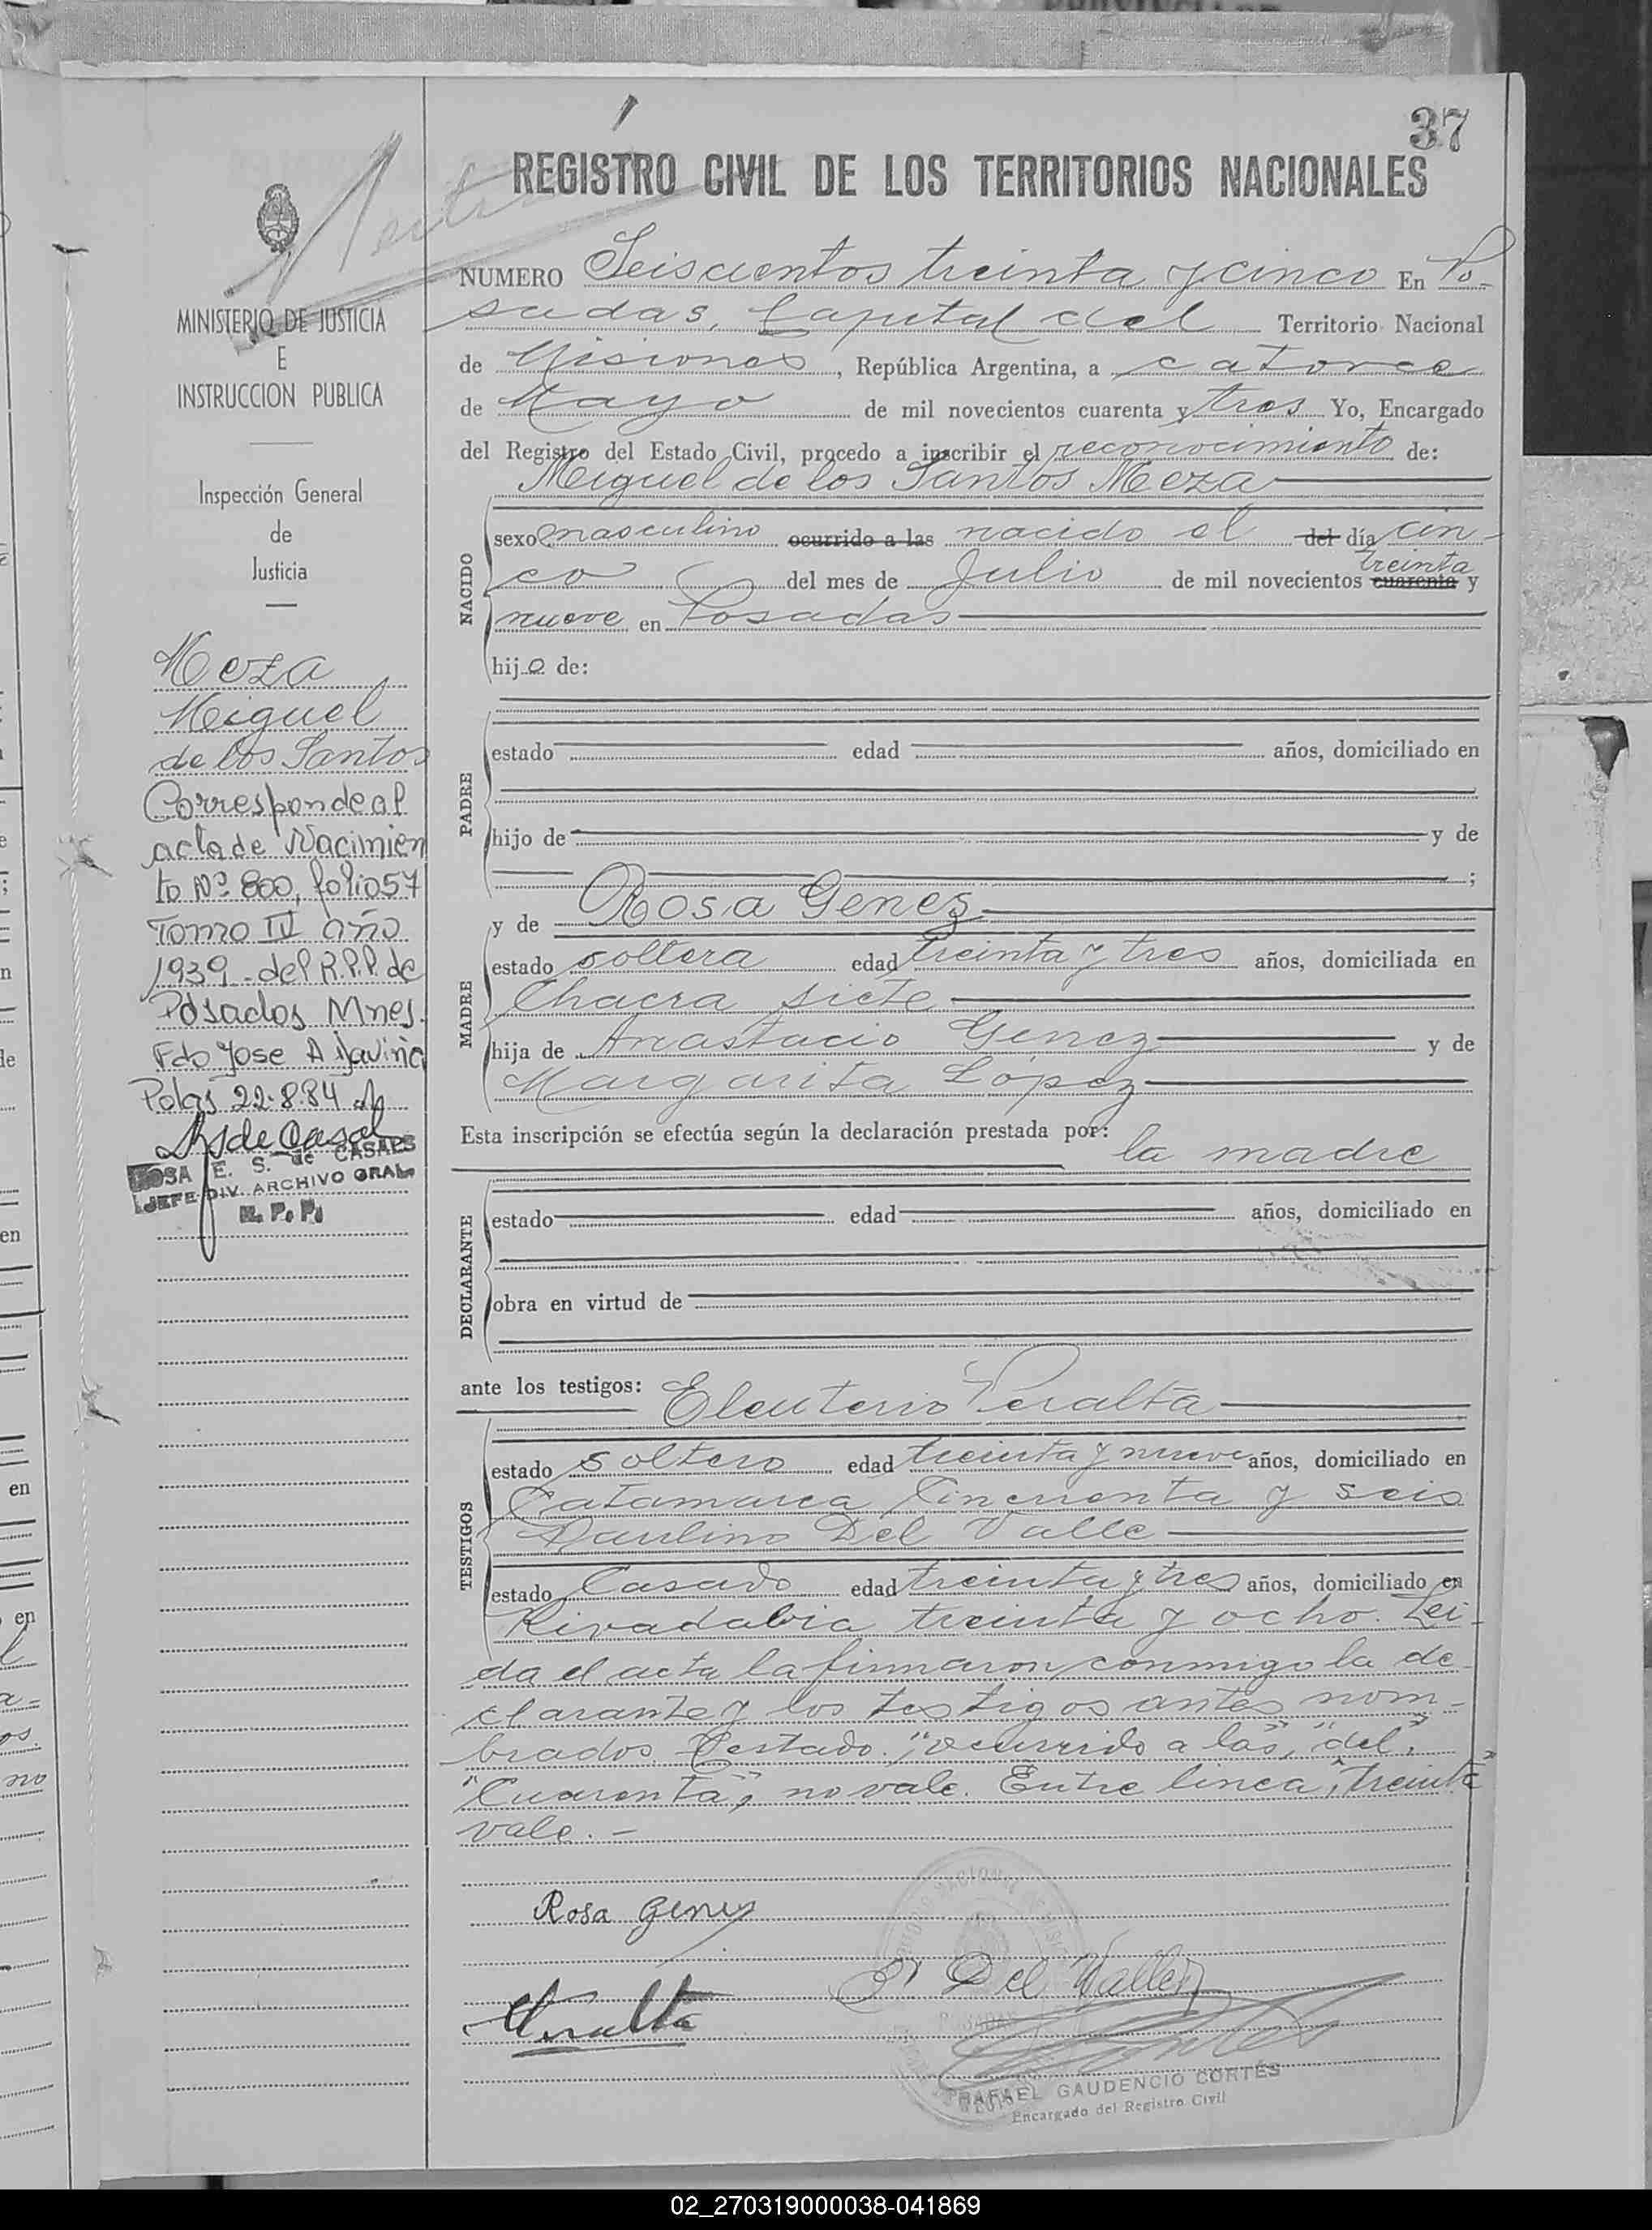 37
REGISTRO CIVIL DE LOS TERRITORIOS NACIONALES
MINISTERIO DE JUSTICIA
E
INSTRUCCION PUBLICA
Inspección General
de
Justicia
Meza
Miguel
de los Santos
Corresponde al
acta de Nacimien
to Nº 800, folio 57
Tomo IV año
1939 - del R.P.P. de
Posadas Mnes.
Fdo Jose A
Pdas 22-8-84
ROSA E. S. de CASALS
JEFE DIV. ARCHIVO GRAL
R. P. P.
NUMERO Seiscientos treinta y cinco En Po-
sadas, Capital del Territorio Nacional
de Misiones, República Argentina, a catorce
de Mayo de mil novecientos cuarenta y tres Yo, Encargado
del Registro del Estado Civil, procedo a inscribir el reconocimiento de:
Miguel de los Santos Meza
NACIDO
sexo masculino ocurrido a las nacido el del día cin-
co del mes de Julio de mil novecientos cuarenta treinta y
nueve en Posadas
hijo de:
PADRE
estado edad años, domiciliado en
hijo de y de
;
MADRE
y de Rosa Genez
estado soltera edad treinta y tres años, domiciliada en
Chacra siete
hija de Anastacio Genez y de
Margarita López
Esta inscripción se efectúa según la declaración prestada por: la madre
DECLARANTE
estado edad años, domiciliado en
obra en virtud de
ante los testigos: Eleuterio Peralta
TESTIGOS
estado soltero edad treinta y nueve años, domiciliado en
Catamarca Cincuenta y seis
Paulino Del Valle
estado Casado edad treinta y tres años, domiciliado en
Rivadabia treinta y ocho. Lei-
da el acta la firmaron conmigo la de-
clarante y los testigos antes nom-
brados. Testado: "ocurrido a las", "del",
"Cuarenta", no vale. Entre linea, "treinta"
vale. -
Rosa Genez
P. Del Valle
Peralta
POSADAS
RAFAEL GAUDENCIO CORTÉS
Encargado del Registro Civil
02_270319000038-041869